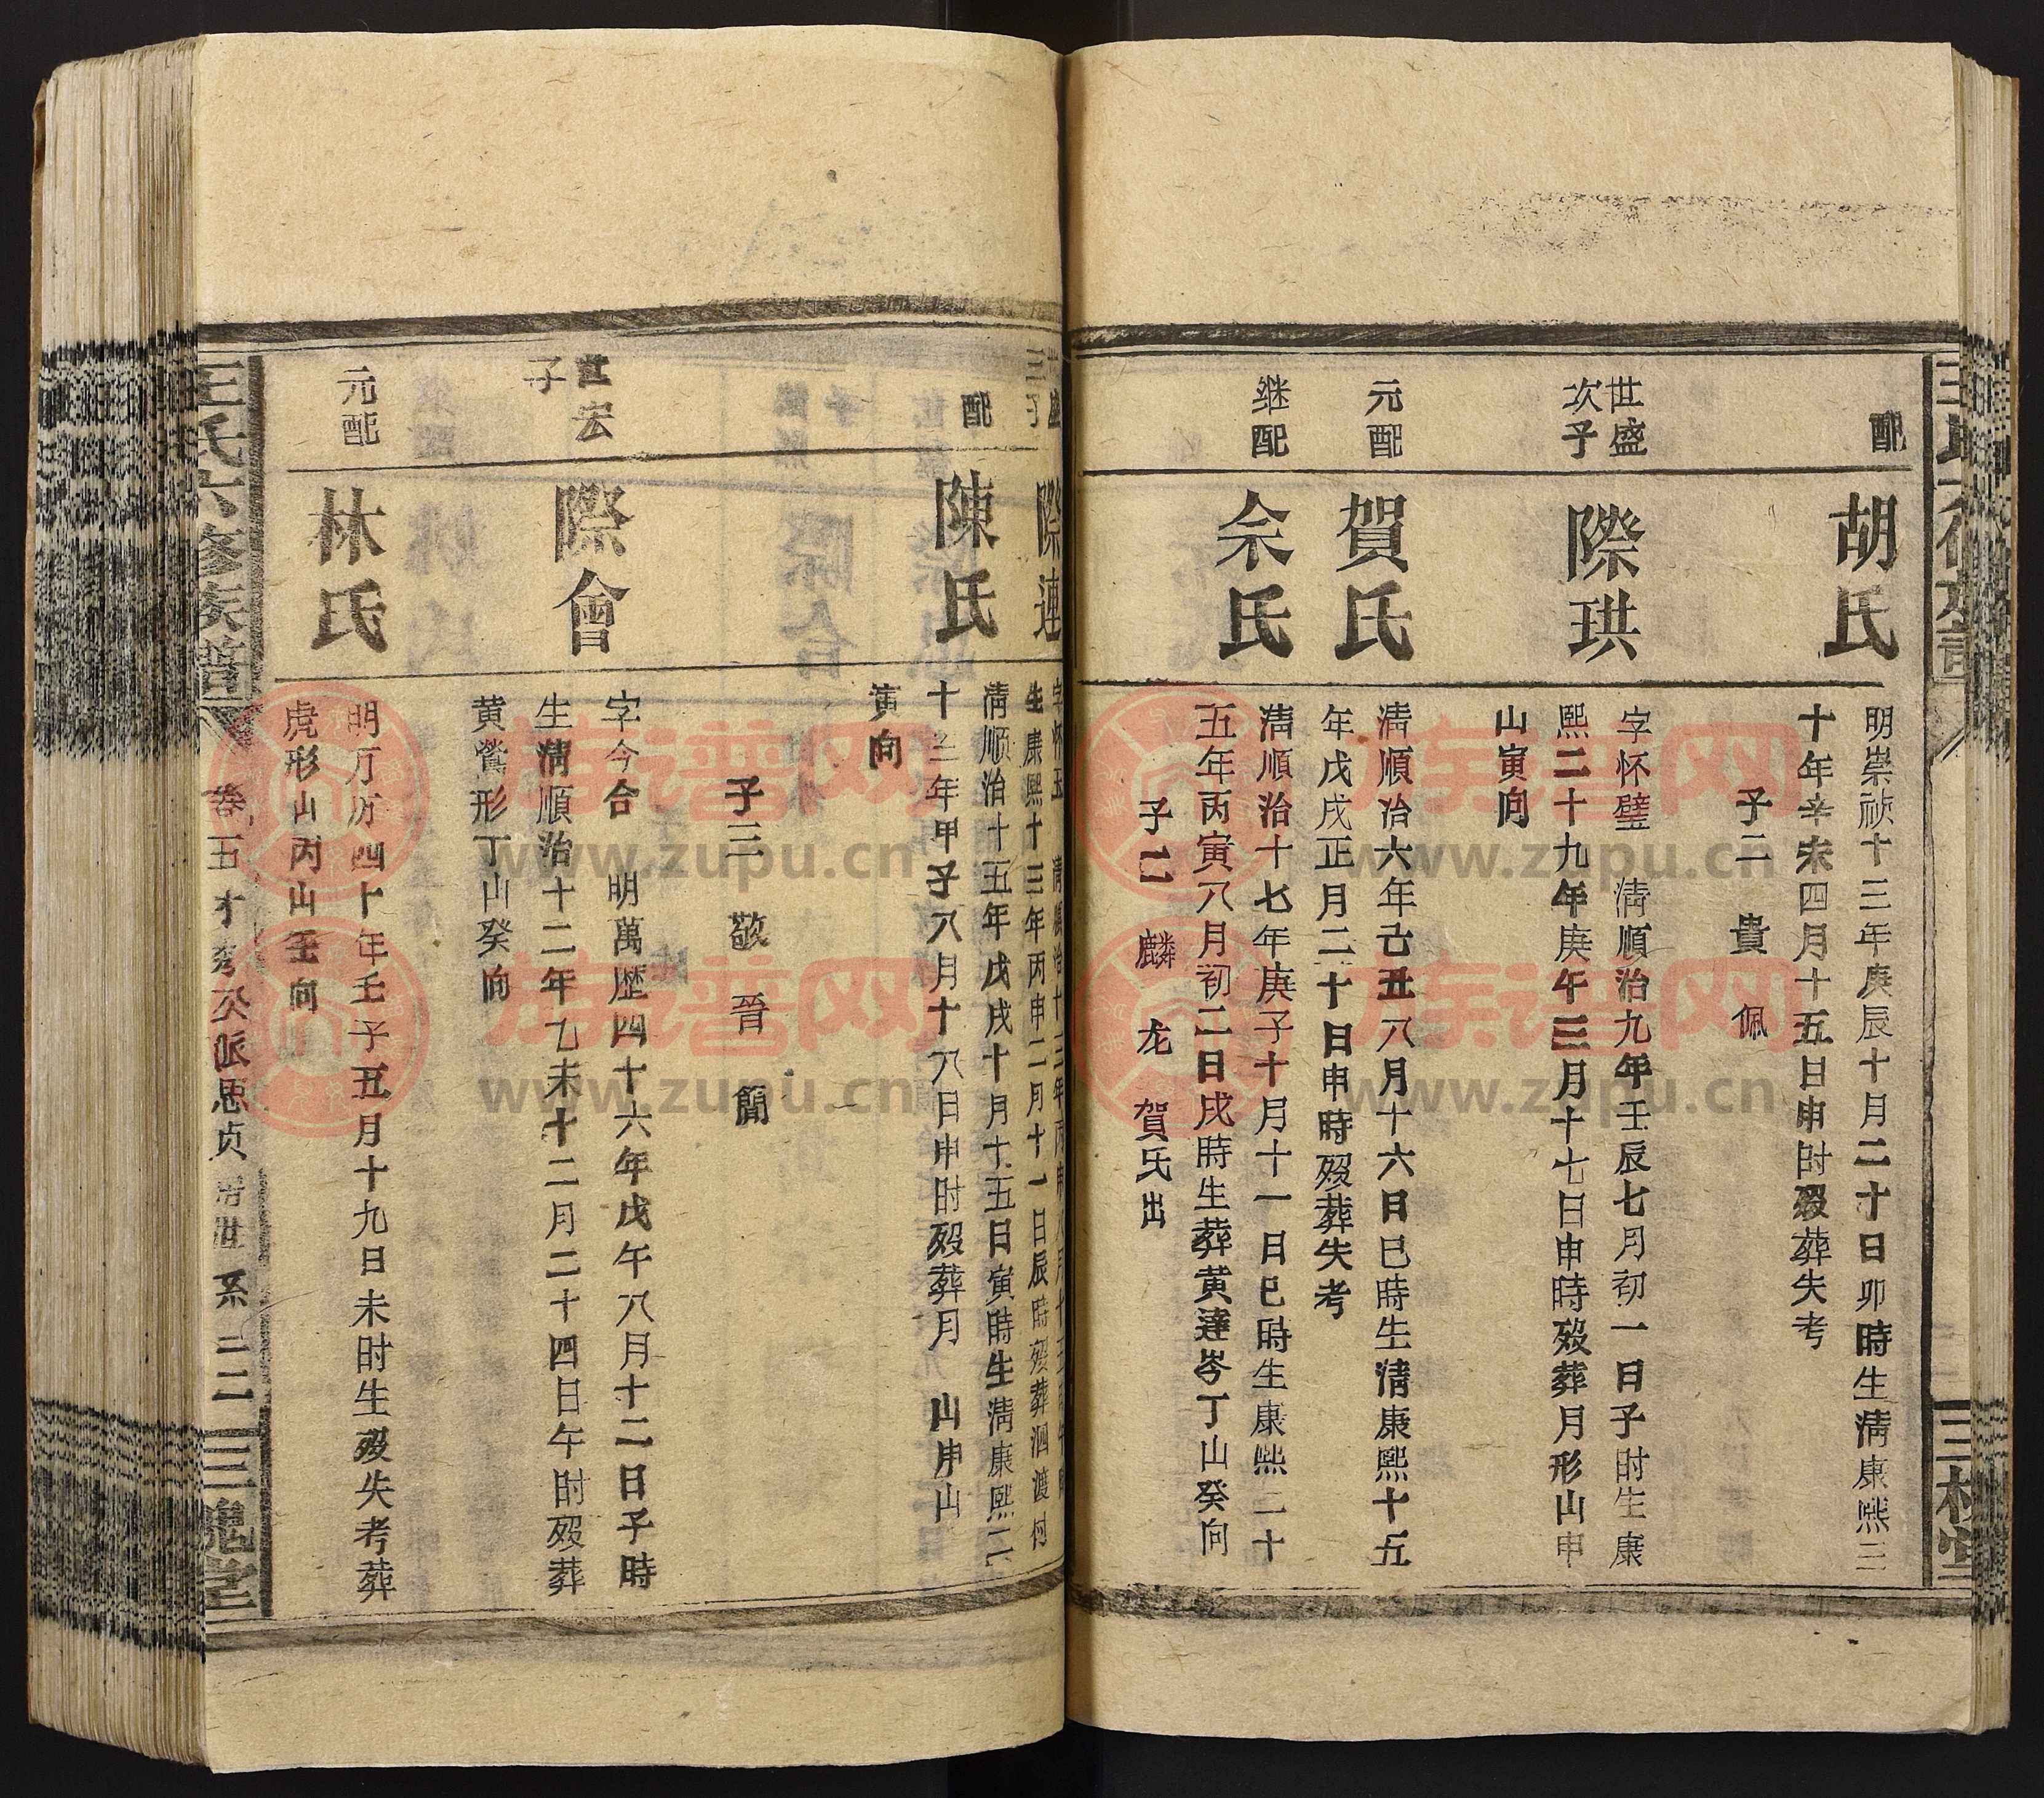 配
胡氏
明崇祯十三年庚辰十月二十日卯時生清康熙三
十年辛未四月十五日申时殁葬失考
子二 貴 佩
世盛
次子
際珙
字怀璧 清順治九年壬辰七月初一日子时生康
熙二十九年庚午三月十七日申時殁葬月形山申
山寅向
元配
賀氏
清順治六年己丑八月十六日巳時生清康熙十五
年戊戌正月二十日申時殁葬失考
继配
余氏
清順治十七年庚子十月十一日巳时生康熙二十
五年丙寅八月初二日戌時生葬黄達岑丁山癸向
子二 麟 龙 賀氏出
世盛
三子
際連
字怀玉 清順治十三年丙申八月十五日午時
生康熙十三年丙申二月十一日辰時殁葬泗渡村
配
陳氏
清順治十五年戊戌十月十五日寅時生清康熙二
十三年甲子八月十八日申时殁葬月 山申山
寅向
子三 敬 晉 簡
世宏
子
際會
字今合 明萬歷四十六年戊午八月十二日子時
生清順治十二年乙未十二月二十四日午时殁葬
黄鶯形丁山癸向
元配
林氏
明万历四十年壬子五月十九日未时生殁失考葬
虎形山丙山壬向
王氏六修族譜
卷五才秀公派思贞房世系
二二
三槐堂
族谱网
www.zupu.cn
族谱网
www.zupu.cn
族谱网
www.zupu.cn
族谱网
www.zupu.cn